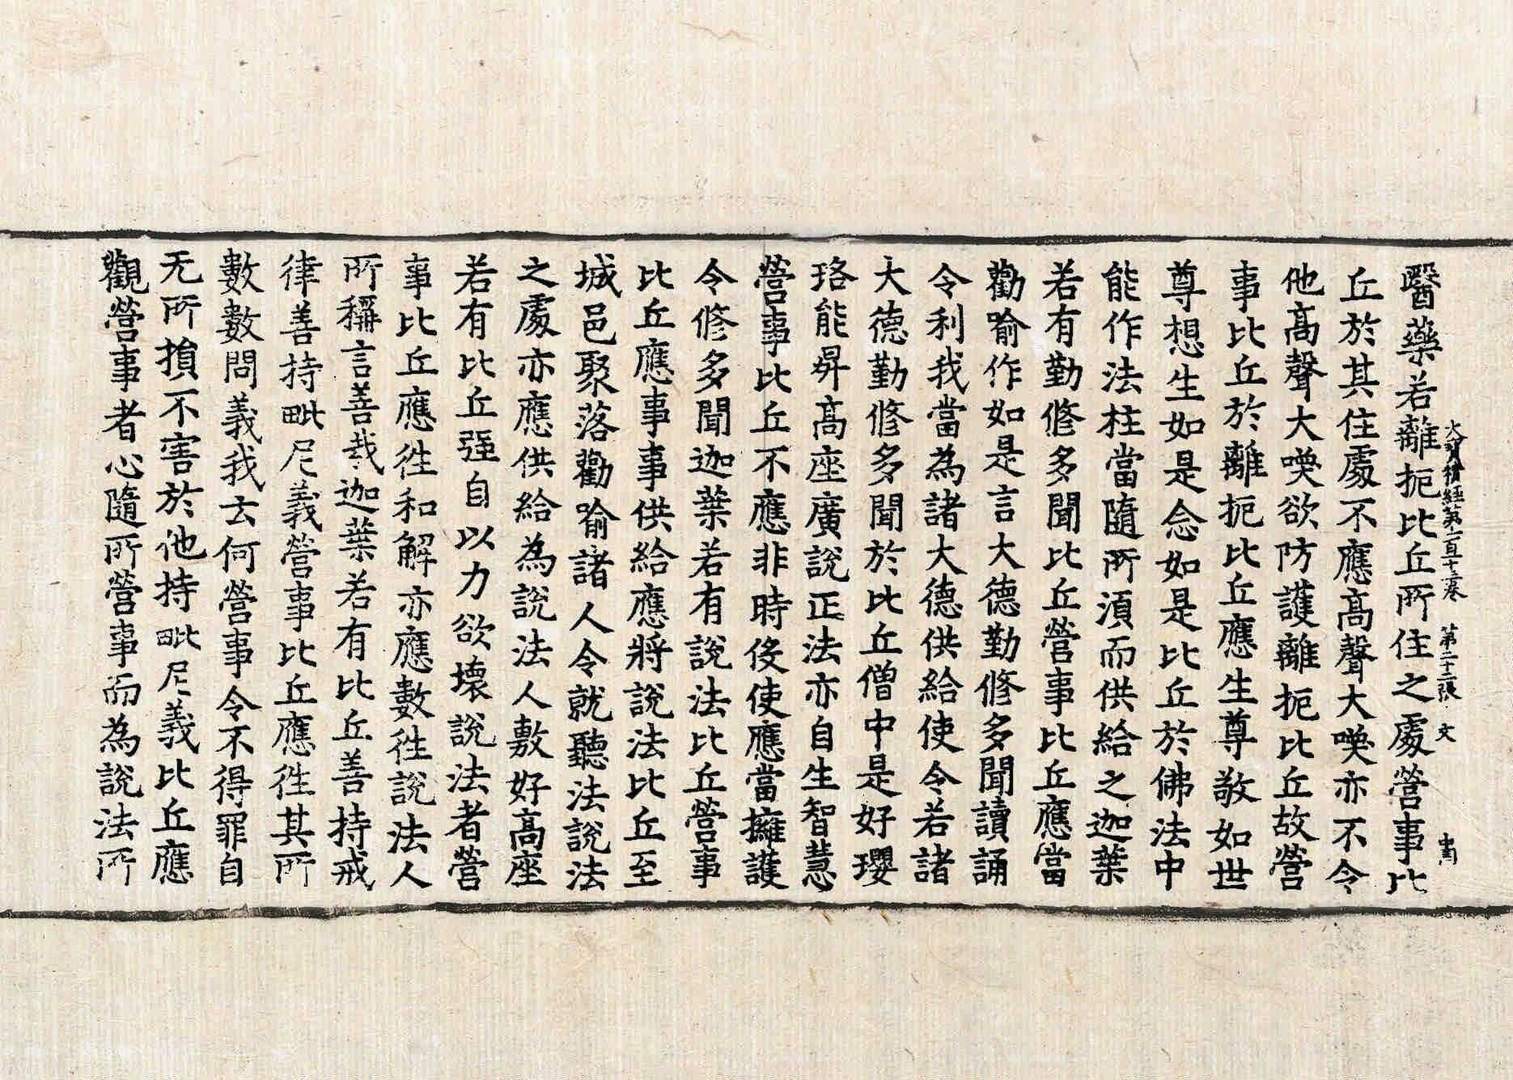 大寶積經第一百十三卷 第二十二張 文
醫藥若離扼比丘所住之處營事比
丘於其住處不應高聲大喚亦不令
他高聲大喚欲防護離扼比丘故營
事比丘於離扼比丘應生尊敬如世
尊想生如是念如是比丘於佛法中
能作法柱當隨所湏而供給之迦葉
若有勤修多聞比丘營事比丘應當
勸喻作如是言大德勤修多聞讀誦
令利我當為諸大德供給使令若諸
大德勤修多聞於比丘僧中是好瓔
珞能昇高座廣說正法亦自生智慧
營事比丘不應非時伇使應當擁護
令修多聞迦葉若有說法比丘營事
比丘應事事供給應將說法比丘至
城邑聚落勸喻諸人令就聽法說法
之處亦應供給為說法人敷好高座
若有比丘强自以力欲壞說法者營
事比丘應徃和解亦應數徃說法人
所稱言善哉迦葉若有比丘善持戒
律善持毗尼義營事比丘應徃其所
數數問義我云何營事令不得罪自
无所損不害於他持毗尼義比丘應
觀營事者心隨所營事而為說法所